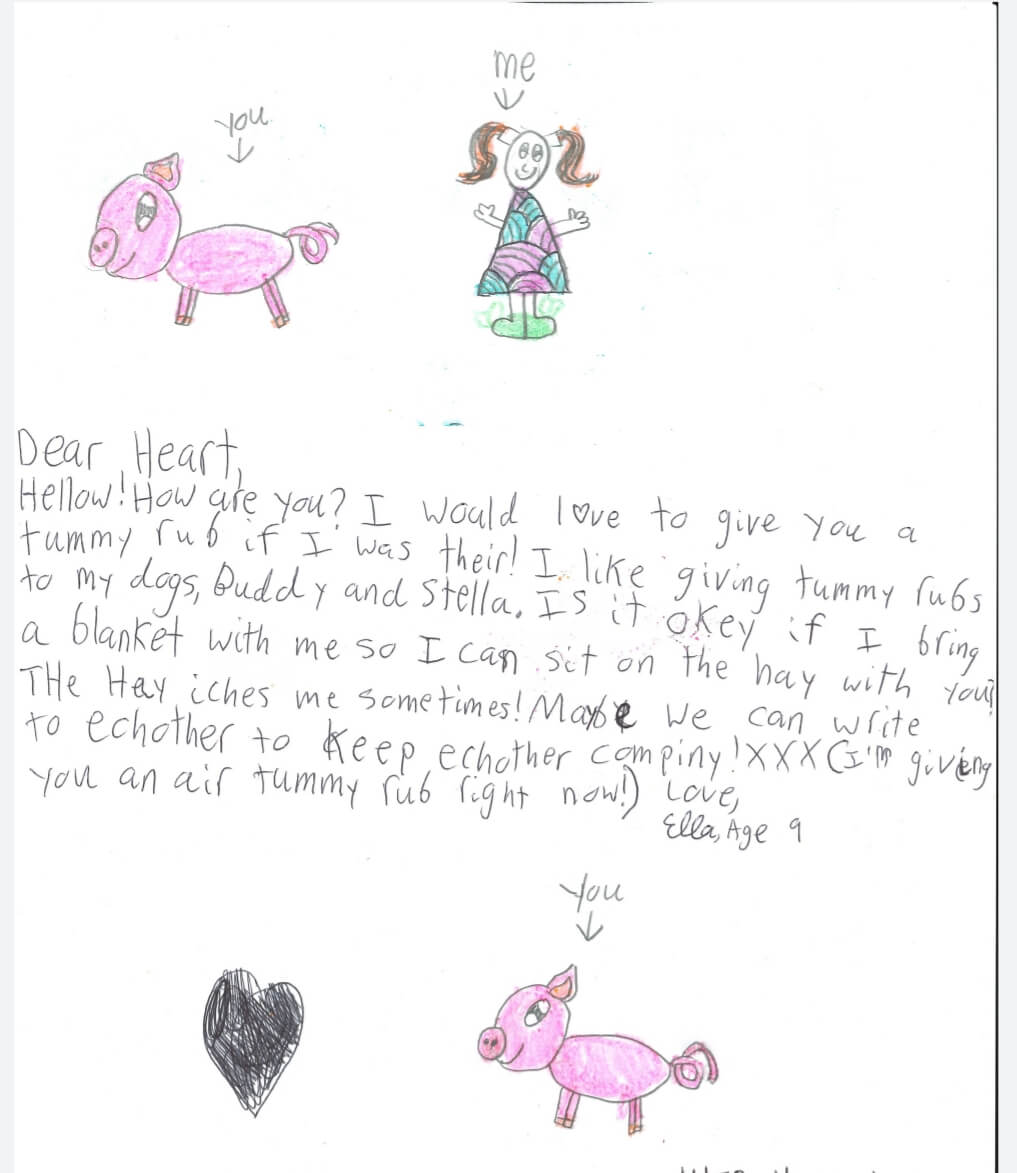 me
you
Dear Heart,
Hellow! How are you? I would love to give you a
tummy rub if I was their! I like giving tummy rubs
to my dogs, Buddy and Stella. Is it okey if I bring
a blanket with me so I can sit on the hay with you?
THe Hay iches me sometimes! Maybe we can write
to echother to keep echother compiny! XXX (I'm giving
you an air tummy rub right now!) Love,
Ella, Age 9
You